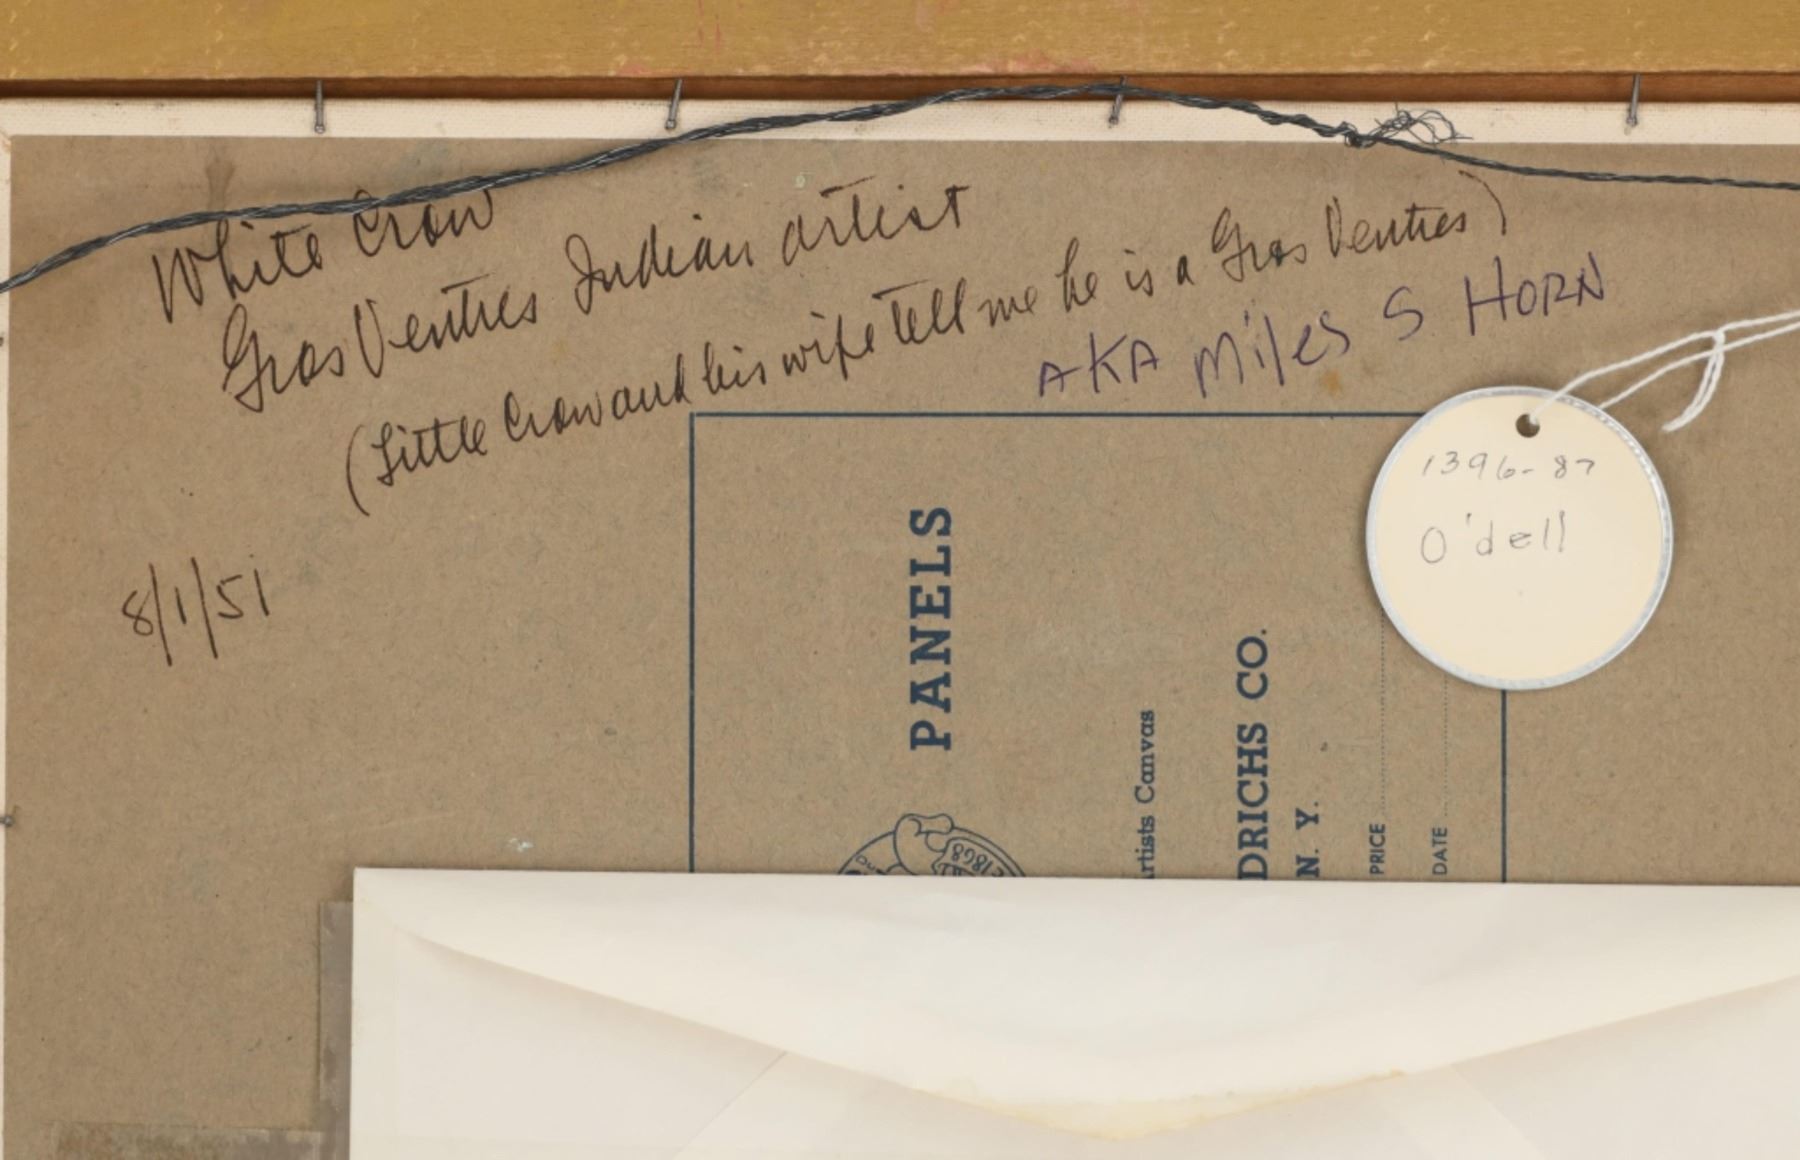 White Crow
Gros Ventres Indian artist
(Little Crow and his wife tell me he is a Gros Ventres)
AKA Miles S HORN
8/1/51
1396-87
O'dell
PANELS
Artists Canvas
DRICHS CO.
N. Y.
PRICE
DATE
1868